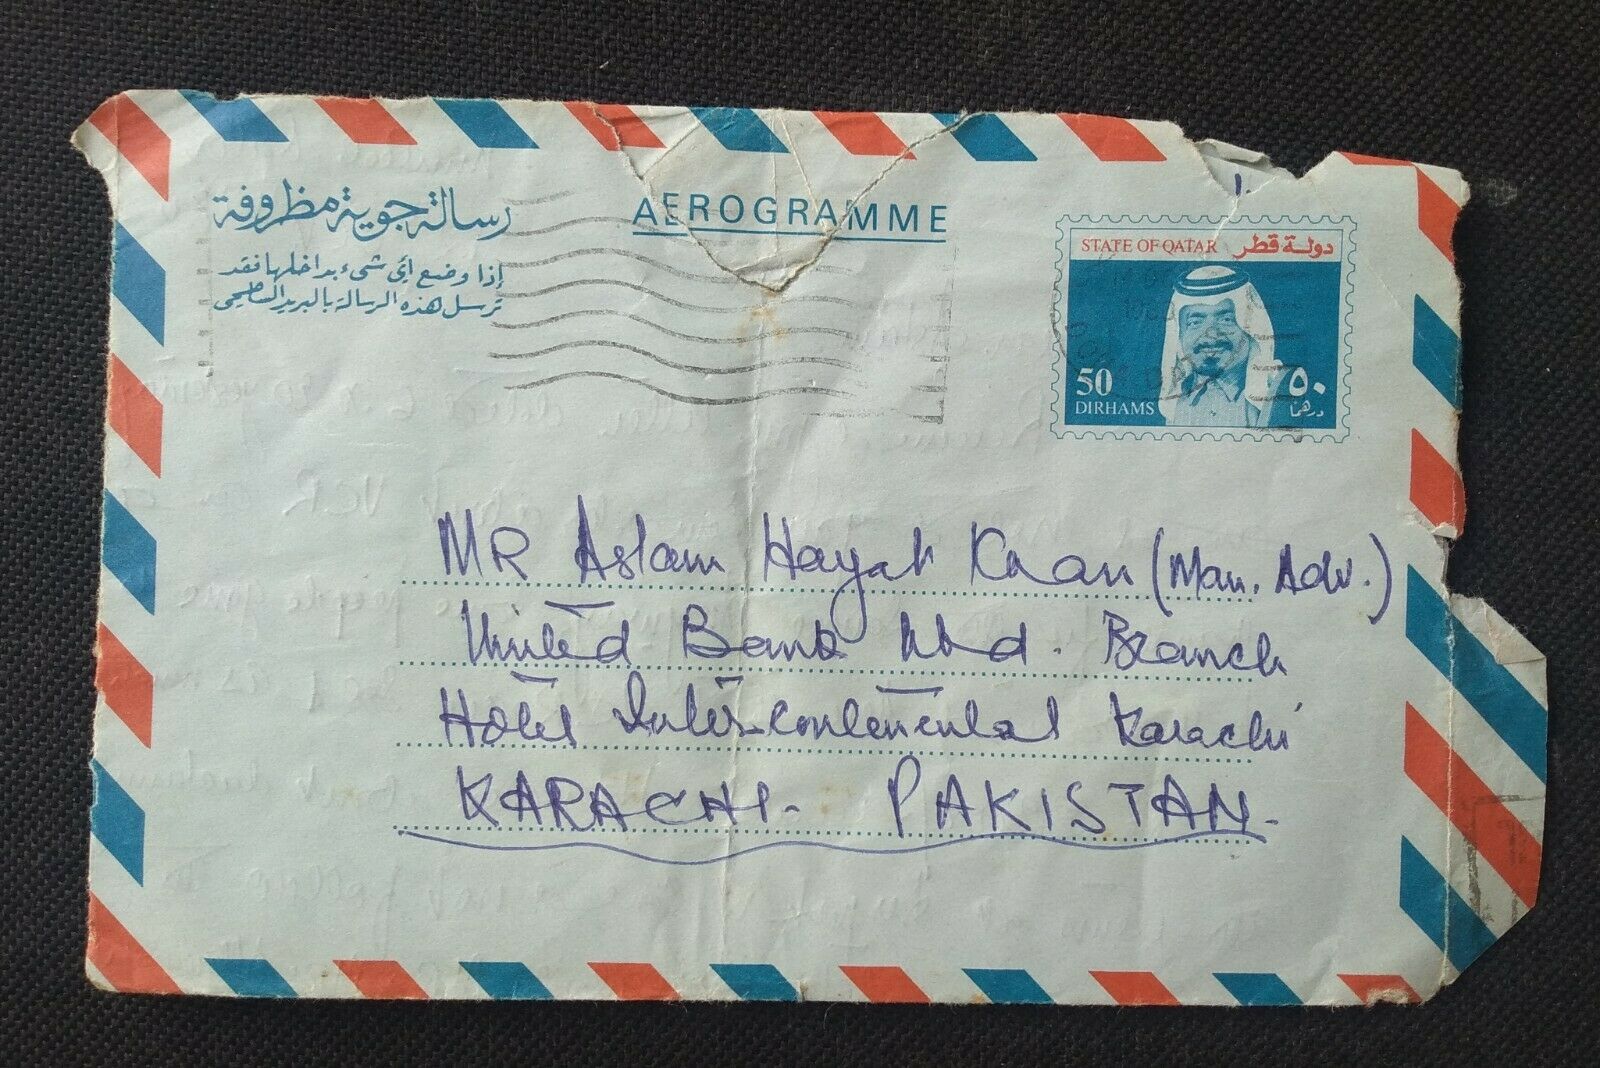 رسالة جوية مظروفة
إذا وضع أي شيء بداخلها فقد
ترسل هذه الرسالة بالبريد السطحي
AEROGRAMME
STATE OF QATAR دولة قطر
50 ٥٠
DIRHAMS درهما
1983
MR Aslam Hayat Khan (Man. Adv.)
United Bank Ltd. Branch
Hotel Inter-continental Karachi
KARACHI- PAKISTAN-